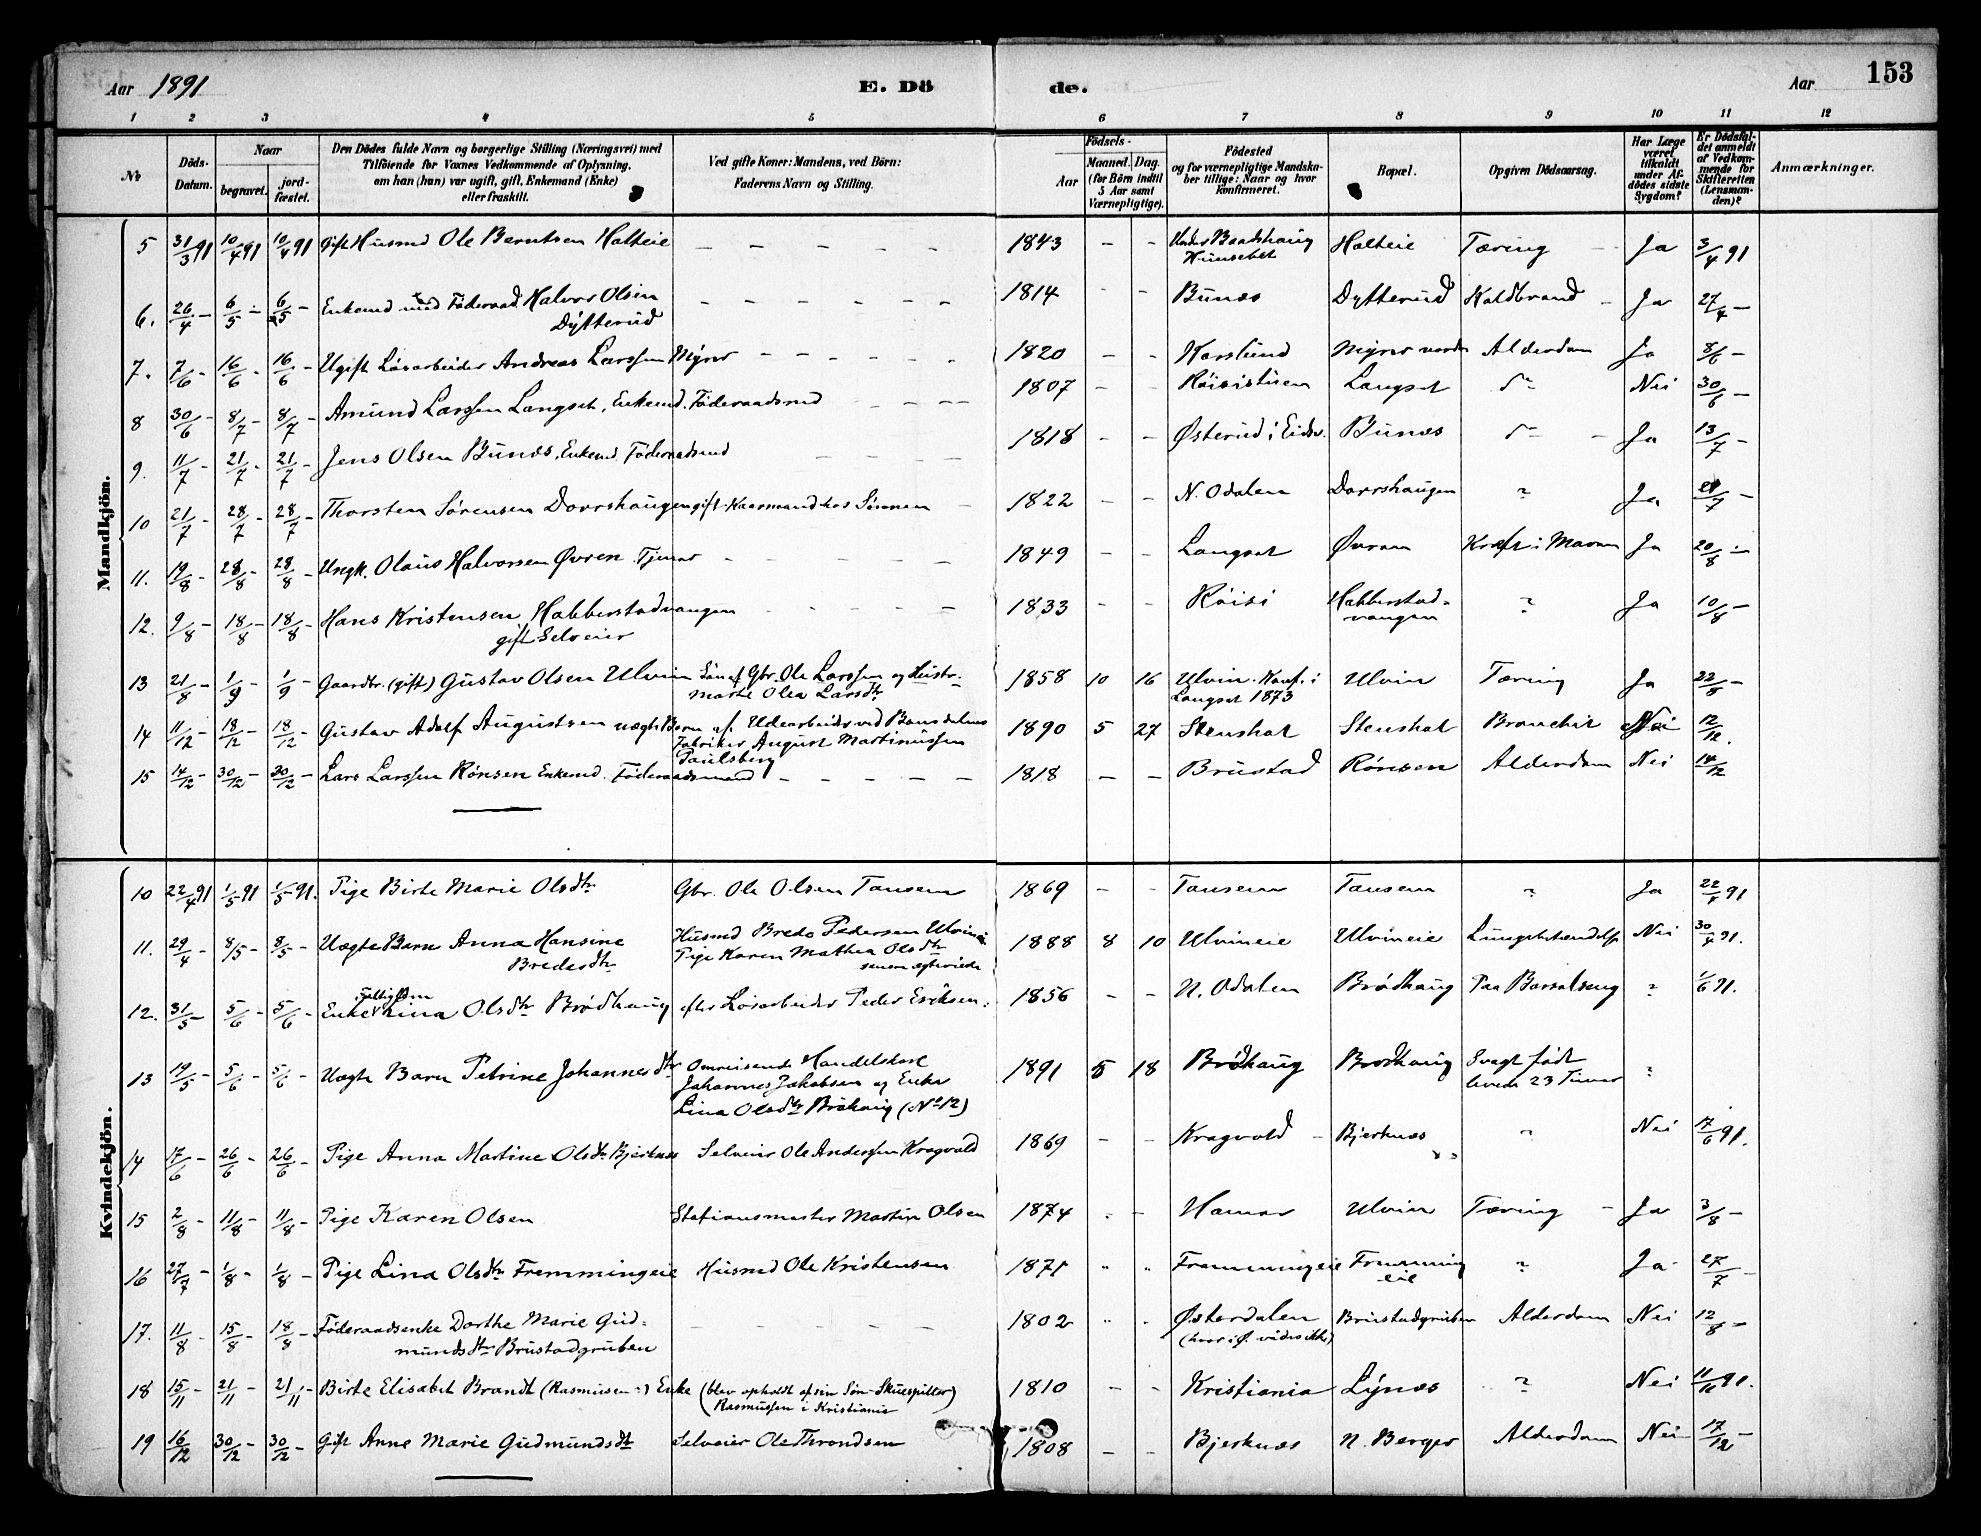 Aar 1891 E. Döde. Aar 153
1 2 3 4 5 6 7 8 9 10 11 12
No
Döds-Datum.
Naar
begravet.
jord-fæstet.
Den Dödes fulde Navn og borgerlige Stilling (Næringsvei) med
Tilföiende for Voxnes Vedkommende af Oplysning,
om han (hun) var ugift, gift, Enkemand (Enke)
eller fraskilt.
Ved gifte Koner: Mandens, ved Börn:
Faderens Navn og Stilling.
Födsels-
Aar
Maaned. Dag.
(for Börn indtil
5 Aar samt
Værnepligtige).
Födested
og for værnepligtige Mandska-
ber tillige: Naar og hvor
konfirmeret.
Bopæl.
Opgiven Dödsaarsag.
Har Læge
været
tilkaldt
under Af-
dödes sidste
Sygdom?
Er Dödsfal-
det anmeldt
af Vedkom-
mende for
Skifteretten
(Lensman-
den)?
Anmærkninger.
Mandkjön.
5 31/3 91 10/4 91 10/4 91 Gift Husmd Ole Berntsen Holteie – – – – – – 1843 – – Under Baadshaug Holteie Tæring – Ja 3/4 91
6. 26/4 – 6/5 – 6/5 – Enkemd med Föderaad Halvor Olsen – – – – – – 1814 – – Bunæs Dytterud Koldbrand – Ja 27/4 –
Dytterud
7. 7/6 – 16/6 – 16/6 – Ugift Lösarbeider Andreas Larssen Myrer – – – – – 1820 – – Karslund Alderdom Ja 8/6 –
8 30/6 – 8/7 – 8/7 – Amund Larssen Langset, Enkemd. Föderaadsmd – – – 1807 – – Langset do Nei 30/6 –
9. 11/7 – 21/7 – 21/7 – Jens Olsen Bunæs, Enkemd. Föderaadsmd – – – – 1818 – – Østerud i Eidsv. Bunæs do – Ja 13/7 –
10 21/7 – 28/7 – 28/7 – Thorsten Sörensen Dorrshaugen gift Kaarmand hos Sönnen – 1822 – – N. Odalen Dorrshaugen ? Ja 21/7 –
11. 19/8 – 28/8 – 28/8 – Ungk. Olaus Halvorsen Øvren Tjener – – – – 1849 – – Langset Øvren Kræft i Maven Ja 20/8 –
12. 9/8 – 18/8 – 18/8 – Hans Kristensen Habberstadvangen – – – – 1833 – – Röisi Habberstad-
vangen ? Ja 10/8 –
gift Selveier
13 21/8 – 1/9 – 1/9 – Gaardbr. (gift) Gustav Olsen Ulvin Sön af Gbr. Ole Larssen og Hustr.
Marte Olea Larsdtr 1858 10 16 Ulvin. Konf. i
Langset 1873 Ulvin Tæring Ja 22/8 –
14 11/12 – 18/12 – 18/12 – Gustav Adolf Augustsen uægte Barn af Udearbeider ved Bönsdalens
Fabriker August Martinussen
Paulsberg 1890 5 27 Stenshat Stenshat Bronchit Nei 12/12.
15 14/12 – 30/12 – 30/12 – Lars Larssen Rönsen Enkemd. Föderaadsmand – – – – – 1818 – – Brustad Rönsen Alderdom Nei 14/12
Kvindekjön.
10 22/4 91 1/5 91 1/5 91. Pige Birte Marie Olsdtr Gbr. Ole Olsen Tansem 1869 – – Tansem Tansem ? Ja 22/4 91
11. 29/4 – 8/5 – 8/5 – Uægte Barn Anna Hansine
Bredesdtr Husmd Brede Pedersen Ulvineie
Pige Karen Mathea Olsdtr
senere egteviede 1888 8 10 Ulvineie Ulvineie Lungebetændelse Nei 30/4 91.
12. 31/5 – 5/6 – 5/6 – Fattiglem
Enke Lina Olsdtr Brödhaug efter Lösarbeider Peder Eriksen. 1856 – – N. Odalen Brödhaug Paa Barselseng ? 1/6 91.
13 19/5 – 5/6 – 5/6 – Uægte Barn Petrine Johannesdtr Omreisende Handelskarl
Johannes Jakobsen og Enke
Lina Olsdtr Brökaug (No 12) 1891 5 18 Brödhaug Brodhaug Svagt född
levede 23 Timer ?
14 17/6 – 26/6 – 26/6 – Pige Anna Martine Olsdtr Bjerknæs Selveier Ole Anderssen Kragvold 1869 – – Kragvold – Bjerknæs ? Nei 17/6 91.
15 2/8 – 11/8 – 11/8 – Pige Karen Olsen Stationsmester Martin Olsen 1874 – – Hamar Ulvin Tæring – Ja 3/8 –
16 27/7 – 1/8 – 1/8 – Pige Lina Olsdtr Fremmingeie Husmd Ole Kristensen 1871 " " Fremmingeie Fremming
eie ? Ja 27/7 –
17. 11/8 – 15/8 – 18/8 – Föderaadsenke Dorthe Marie Gud-
mundsdtr Brustadgruben – – – – – 1802 " – Østerdalen
(hvor i Ø. vides ikke) Brustadgruben Alderdom Nei 12/8 –
18 15/11 – 21/11 – 21/11 – Birte Elisabet Brandt (Rasmussen) Enke (blev opholdt af sin Sön Skuespiller
Rasmussen i Kristiania) 1810 – – Kristiania Lynæs ? Nei 11/11 91.
19 16/12 30/12 – 30/12 – Gift Anne Marie Gudmundsdtr Selveier Ole Throndsen 1808 – – Bjerknæs N. Berger Alderdom Nei 17/12 –